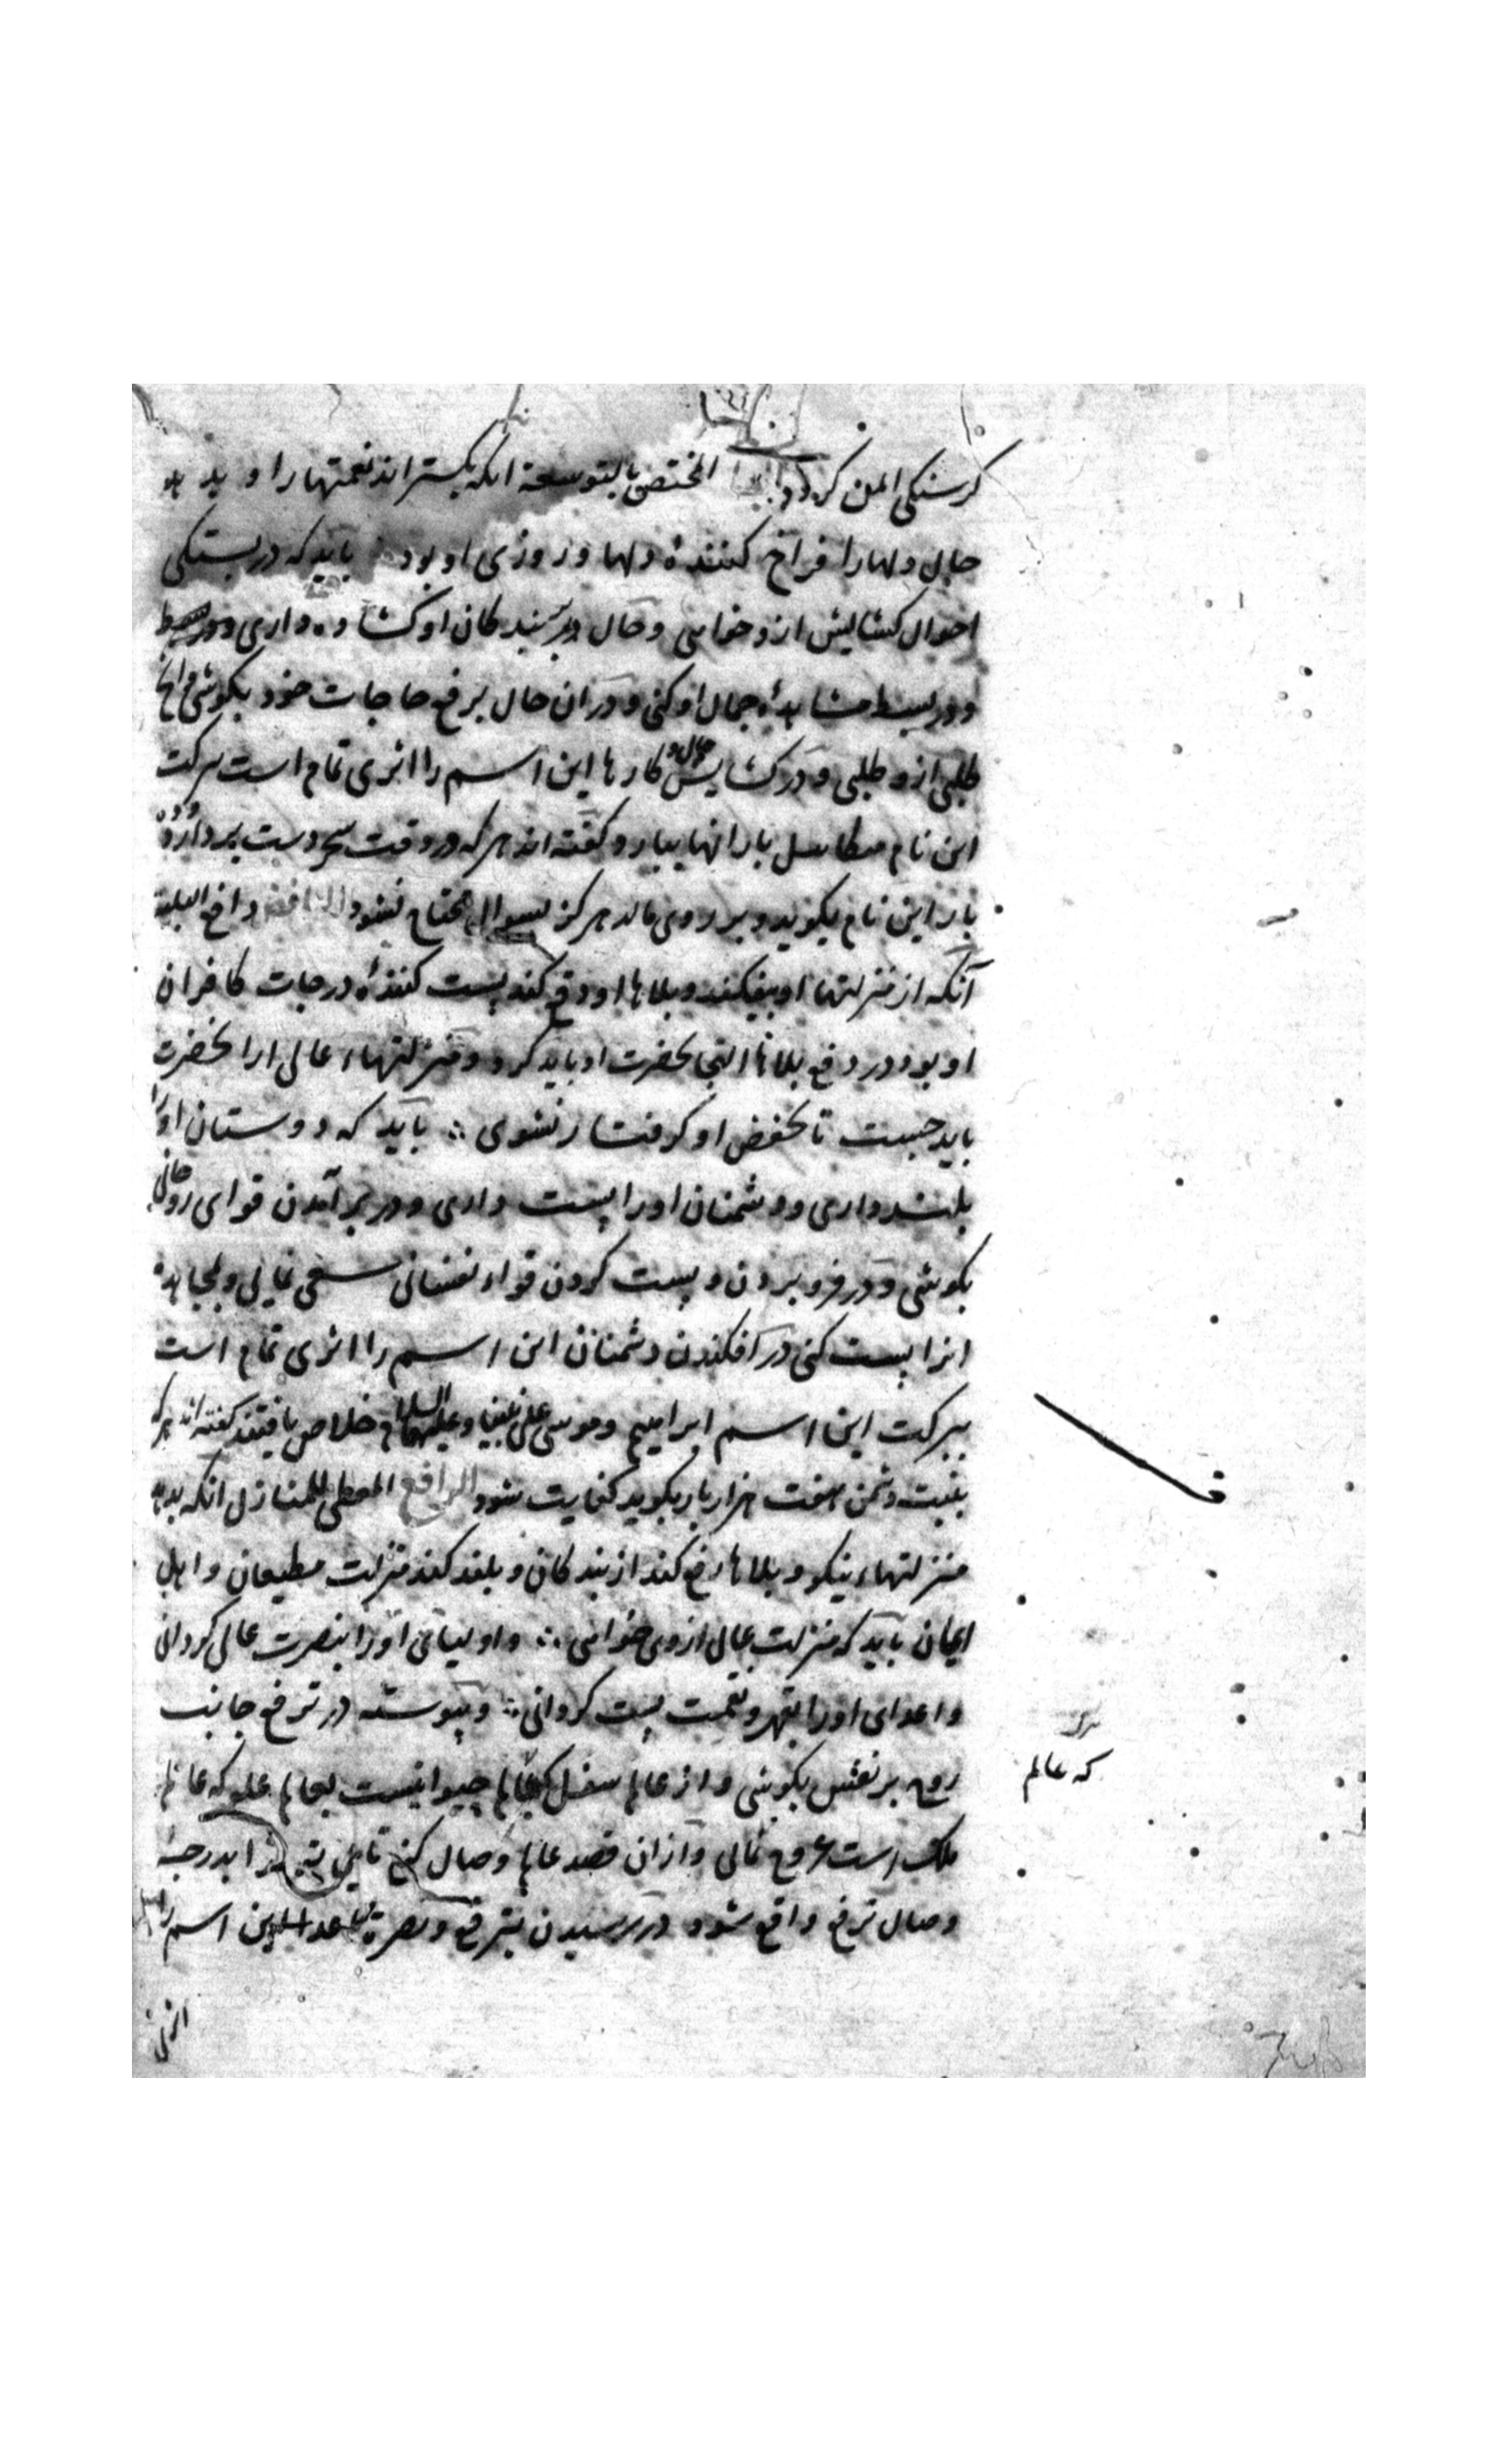 کرسنکی ایمن کردد المختص بالتوسعة انکه بکستراند نعمتها را و بدید
حال دلها را فراخ کنندۀ دلها و روزی او بود باید که در بستکی
احوال کشایش ازو خواهی و حال بر بندکان او کشاده داری و در
و در بسط مشاهدۀ جمال او کنی و در ان حال برفع حاجات خود بکوشی
طلبی ازو طلبی و در کشایش کارها این اسم را اثری تمام است ببرکت
این نام میکائیل بارانها ببارد و کفته اند هر که در وقت سحر دست بردارد و ده
بار این نام بکوید و بر روی مالد هرکز بسوال محتاج نشود الخافض دافع البلیة
آنکه از منزلتها او بیفکند و بلاها او دفع کند پست کنندۀ درجات کافران
او بود در دفع بلاها التجا بحضرت او باید کرد و منزلتهاء عالی را از بحضرت
باید جست تا بخفض او کرفتار نشوی ∴ باید که دوستان او را
بلند داری و دشمنان او را پست داری و در برآمدن قوای روحانی
بکوشی و در فرو بردن و پست کردن قواء نفسانی سعی نمایی و بمجاهده
انرا پست کنی در افکندن دشمنان این اسم را اثری تمام است
ببرکت این اسم ابراهیم و موسی علی نبینا و علیهما السلام خلاص یافتند کفته اند هر که
بنیت دشمن هفت هزار بار بکوید کفایت شود الرافع المعطی للمنازل انکه بدهد
منزلتهاء نیکو و بلاها رفع کند از بندکان و بلند کند منزلت مطیعان و اهل
ایمان باید که منزلت عالی از وی خواهی ∴ و اولیای او را بنصرت عالی کردانی
و اعدای او را بقهر و نقمت پست کردانی ∴ و پیوسته در ترفع جانب
روح بر نفس بکوشی و از عالم سفل که عالم حیوانیست بعالم علو که عالم
که عالم
ملک است عروج نمائی و از ان قصد عالم وصال کنی تا بدرجۀ
وصال ترفع واقع شود در رسیدن بترفع و نصرة اعدا این اسم را
اثری